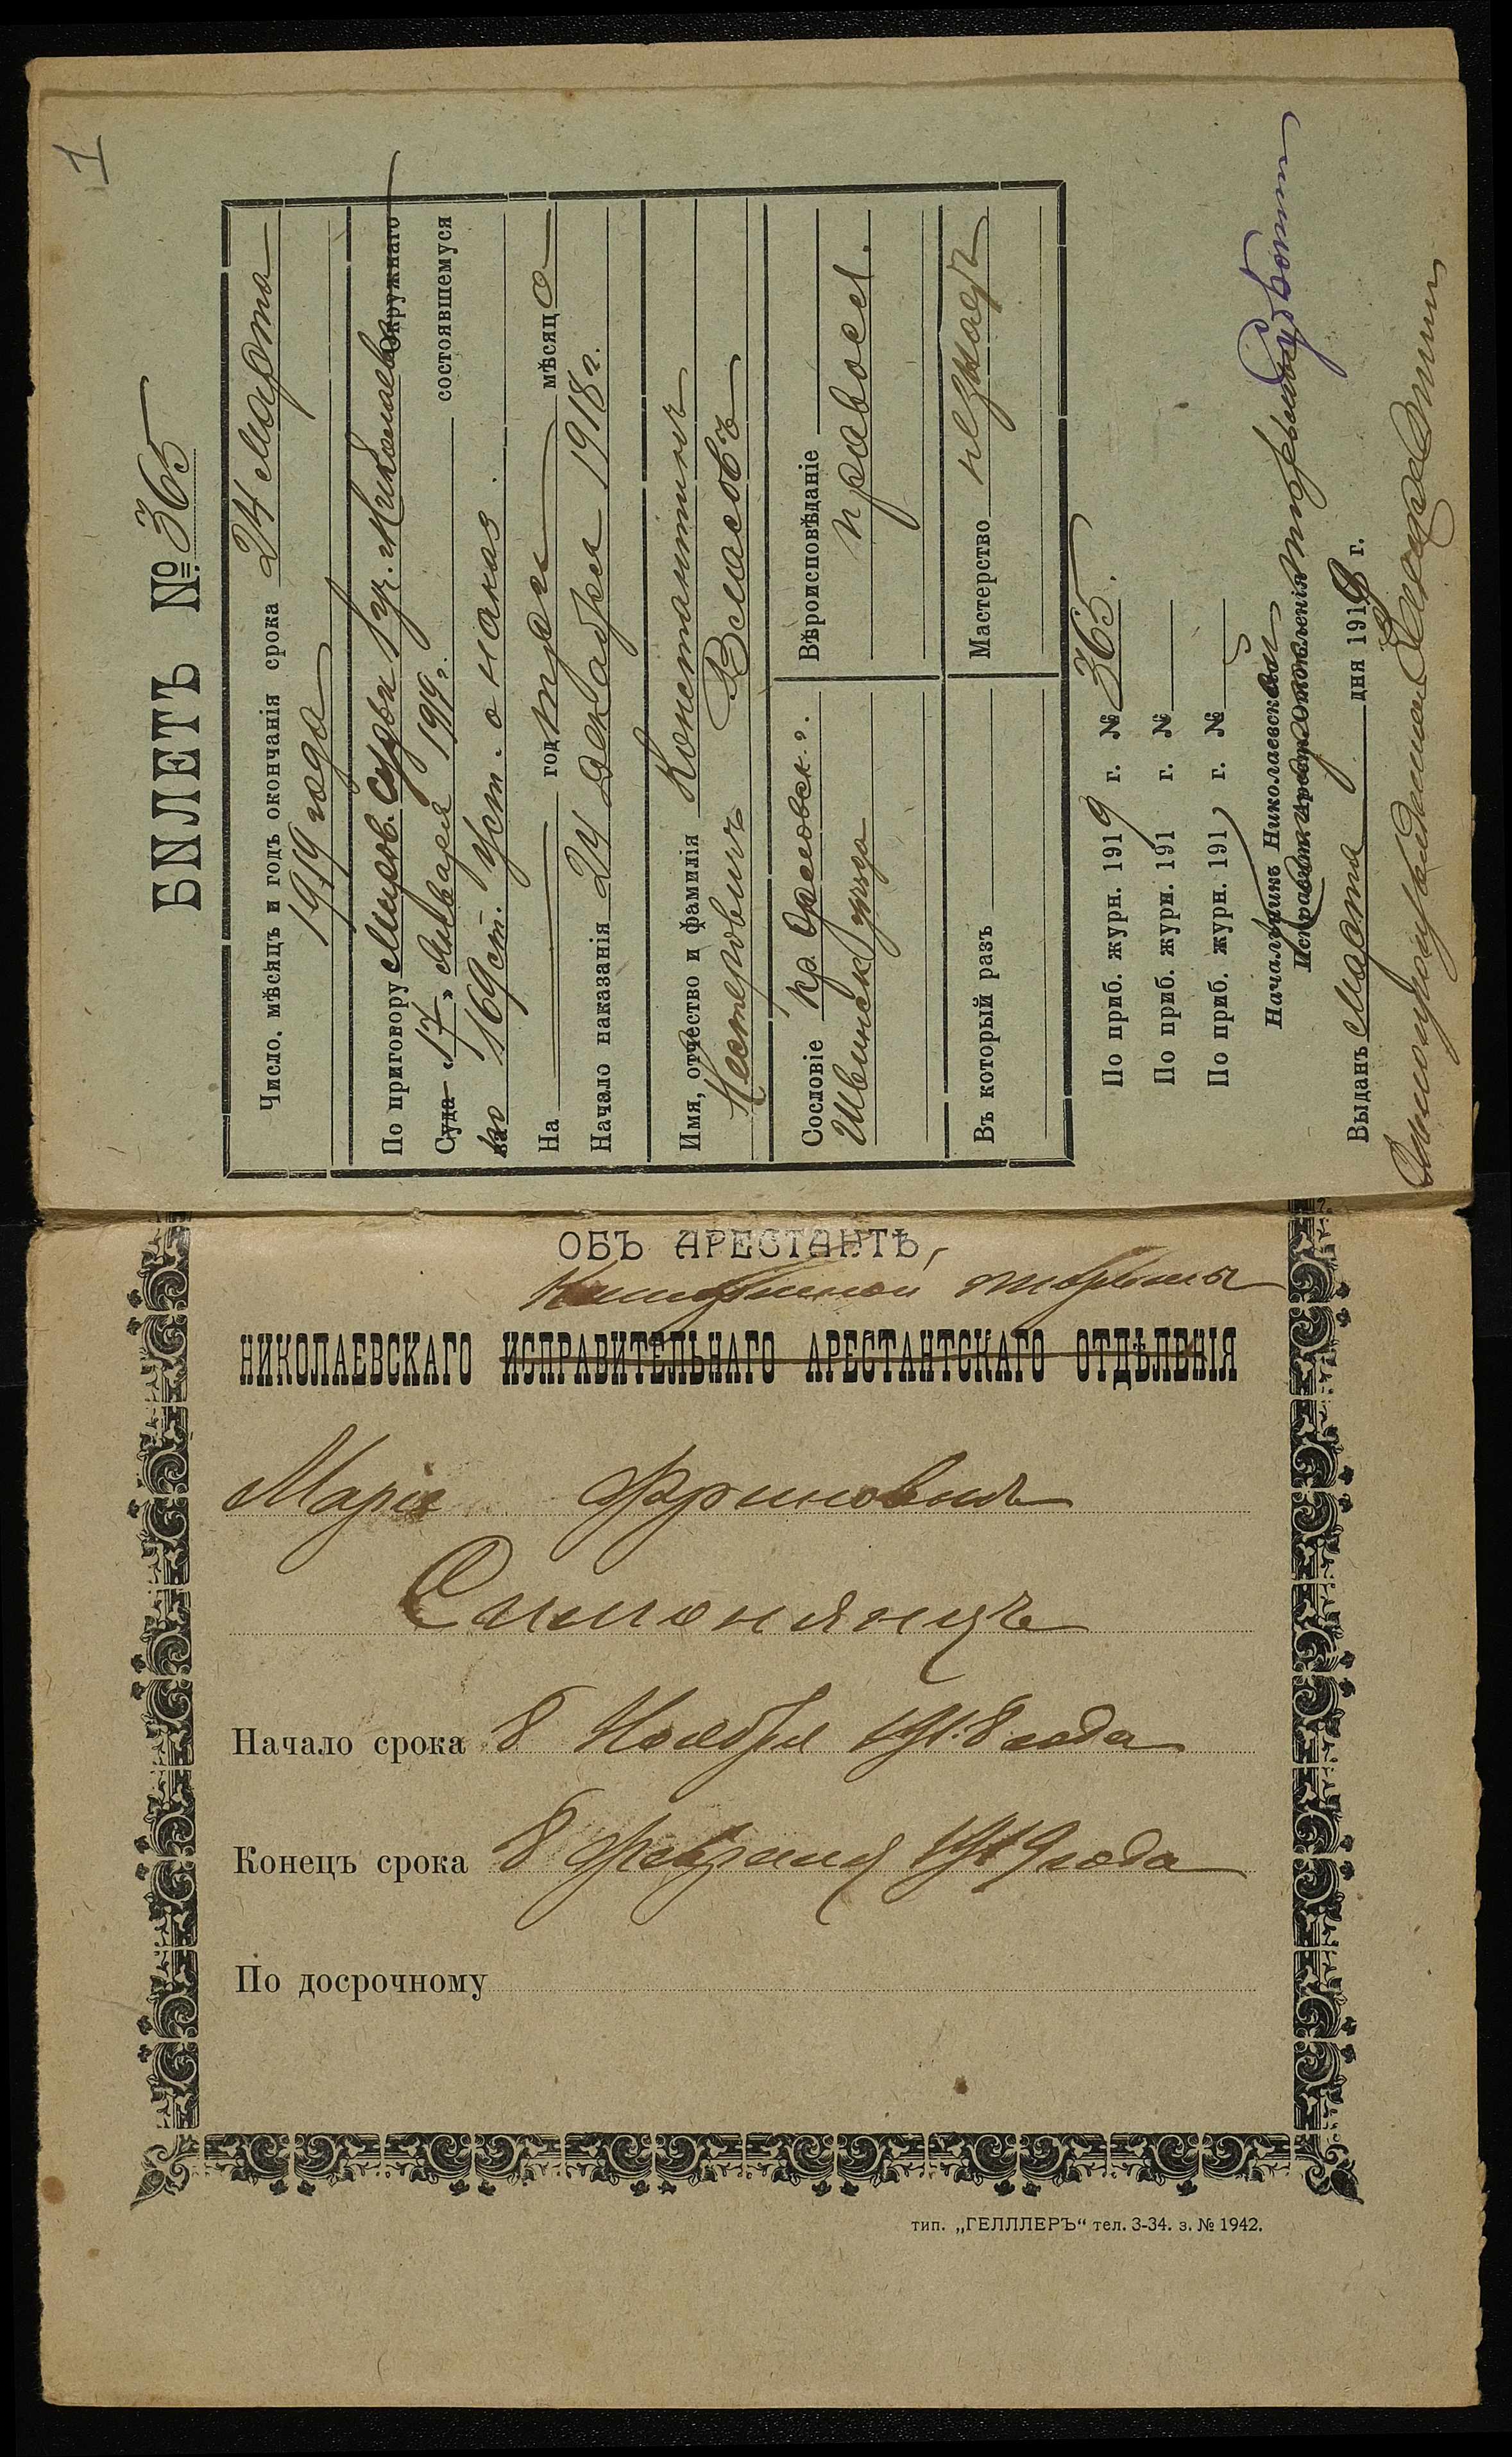 1
БИЛЕТЪ №. 365
Число, мѣсяцъ и годъ окончанія срока 24 Марта
1919 года
По приговору Миров. Судьи 1 уч. Николаев Окружнаго
Суда „17„ Января 1919 г. состоявшемуся
за по 169 ст. уст. о наказ.
На год три мѣсяца
Начало наказанія 24 Декабря 1918 г.
Имя, отчество и фамилія Константинъ
Нестеровичъ Власовъ
Сословіе кр. Орловск. г.
уѣзда
Вѣроисповѣданіе
правосл.
Въ который разъ
Мастерство незнаетъ
По приб. журн. 1919 г. № 365.
По приб. журн. 191 г. №
По приб. журн. 191 г. №
Начальникъ Николаевской
Исправит. Арест. Отдѣленія тюрьмы
Выданъ Марта дня 1919 г.
ОБЪ АРЕСТАНТѢ,
тюрьмы
НИКОЛАЕВСКАГО ИСПРАВИТЕЛЬНАГО АРЕСТАНТСКАГО ОТДѢЛЕНІЯ
Марія
Симонянцъ
Начало срока 8 Ноября 1918 года
Конецъ срока 8 февраля 1919 года
По досрочному
тип. „ГЕЛЛЛЕРЪ“ тел. 3-34. з. № 1942.